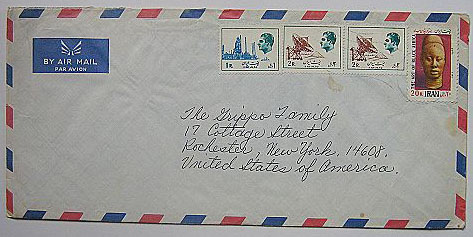 BY AIR MAIL
PAR AVION
1R.
2R.
2R.
20R. IRAN
The Grippo Family
17 Cottage Street
Rochester, New York. 14608.
United States of America.